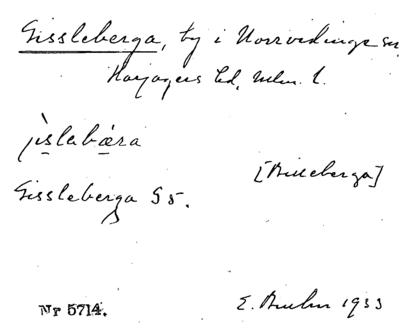 Gissleberga, by i Norrvidinge sn,
Harjagers hd, Mlm. l.
jìslabæ̀ra
[Billeberga]
Gissleberga G5.
Nr 5714.
E. 1933